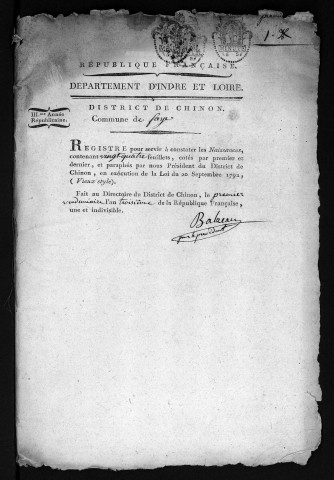 1.
RÉPUBLIQUE FRANÇAISE.
DÉPARTEMENT D'INDRE ET LOIRE.
DISTRICT DE CHINON.
III.me Année
Républicaine.
Commune de faye
REGISTRE pour servir à constater les Naissances,
contenant vingt quatre feuillets, cotés par premier et
dernier, et paraphés par nous Président du District de
Chinon, en exécution de la Loi du 20 Septembre 1792,
(Vieux style).
Fait au Directoire du District de Chinon, le premier
vendemiaire l'an troisième de la République Française,
une et indivisible.